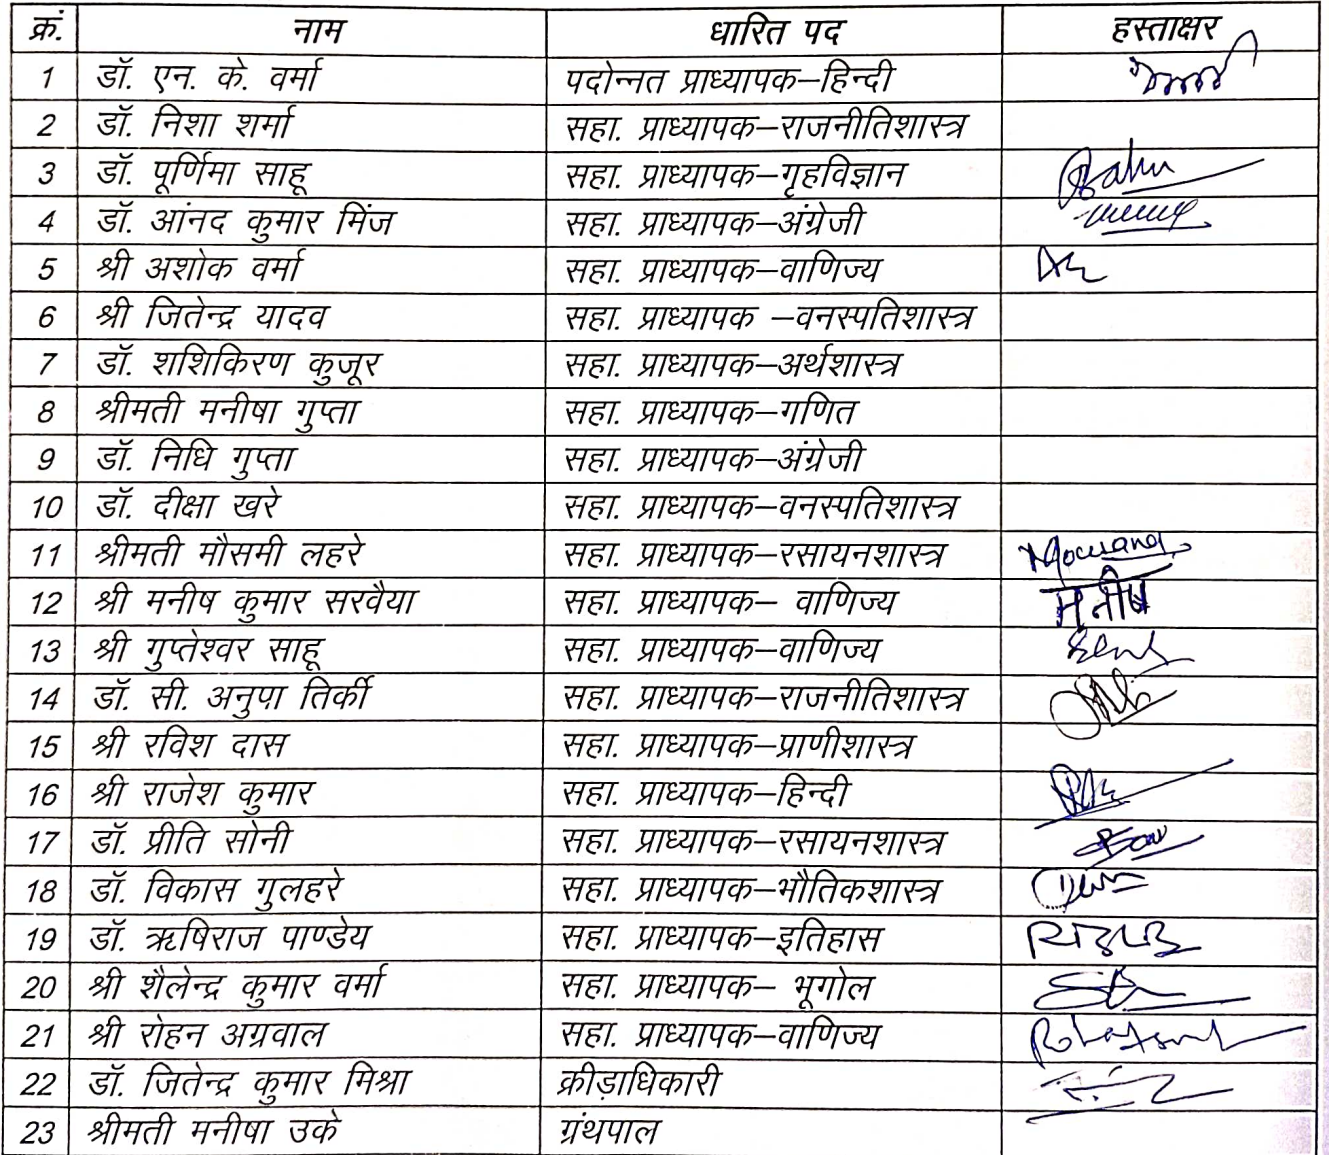 क्रं. नाम धारित पद हस्ताक्षर
1 डॉ. एन. के. वर्मा पदोन्नत प्राध्यापक–हिन्दी
2 डॉ. निशा शर्मा सहा. प्राध्यापक–राजनीतिशास्त्र
3 डॉ. पूर्णिमा साहू सहा. प्राध्यापक–गृहविज्ञान
4 डॉ. आंनद कुमार मिंज सहा. प्राध्यापक–अंग्रेजी
5 श्री अशोक वर्मा सहा. प्राध्यापक–वाणिज्य
6 श्री जितेन्द्र यादव सहा. प्राध्यापक –वनस्पतिशास्त्र
7 डॉ. शशिकिरण कुजूर सहा. प्राध्यापक–अर्थशास्त्र
8 श्रीमती मनीषा गुप्ता सहा. प्राध्यापक–गणित
9 डॉ. निधि गुप्ता सहा. प्राध्यापक–अंग्रेजी
10 डॉ. दीक्षा खरे सहा. प्राध्यापक–वनस्पतिशास्त्र
11 श्रीमती मौसमी लहरे सहा. प्राध्यापक–रसायनशास्त्र
12 श्री मनीष कुमार सरवैया सहा. प्राध्यापक– वाणिज्य मनीष
13 श्री गुप्तेश्वर साहू सहा. प्राध्यापक–वाणिज्य
14 डॉ. सी. अनुपा तिर्की सहा. प्राध्यापक–राजनीतिशास्त्र
15 श्री रविश दास सहा. प्राध्यापक–प्राणीशास्त्र
16 श्री राजेश कुमार सहा. प्राध्यापक–हिन्दी
17 डॉ. प्रीति सोनी सहा. प्राध्यापक–रसायनशास्त्र
18 डॉ. विकास गुलहरे सहा. प्राध्यापक–भौतिकशास्त्र
19 डॉ. ऋषिराज पाण्डेय सहा. प्राध्यापक–इतिहास
20 श्री शैलेन्द्र कुमार वर्मा सहा. प्राध्यापक– भूगोल
21 श्री रोहन अग्रवाल सहा. प्राध्यापक–वाणिज्य
22 डॉ. जितेन्द्र कुमार मिश्रा क्रीड़ाधिकारी
23 श्रीमती मनीषा उके ग्रंथपाल